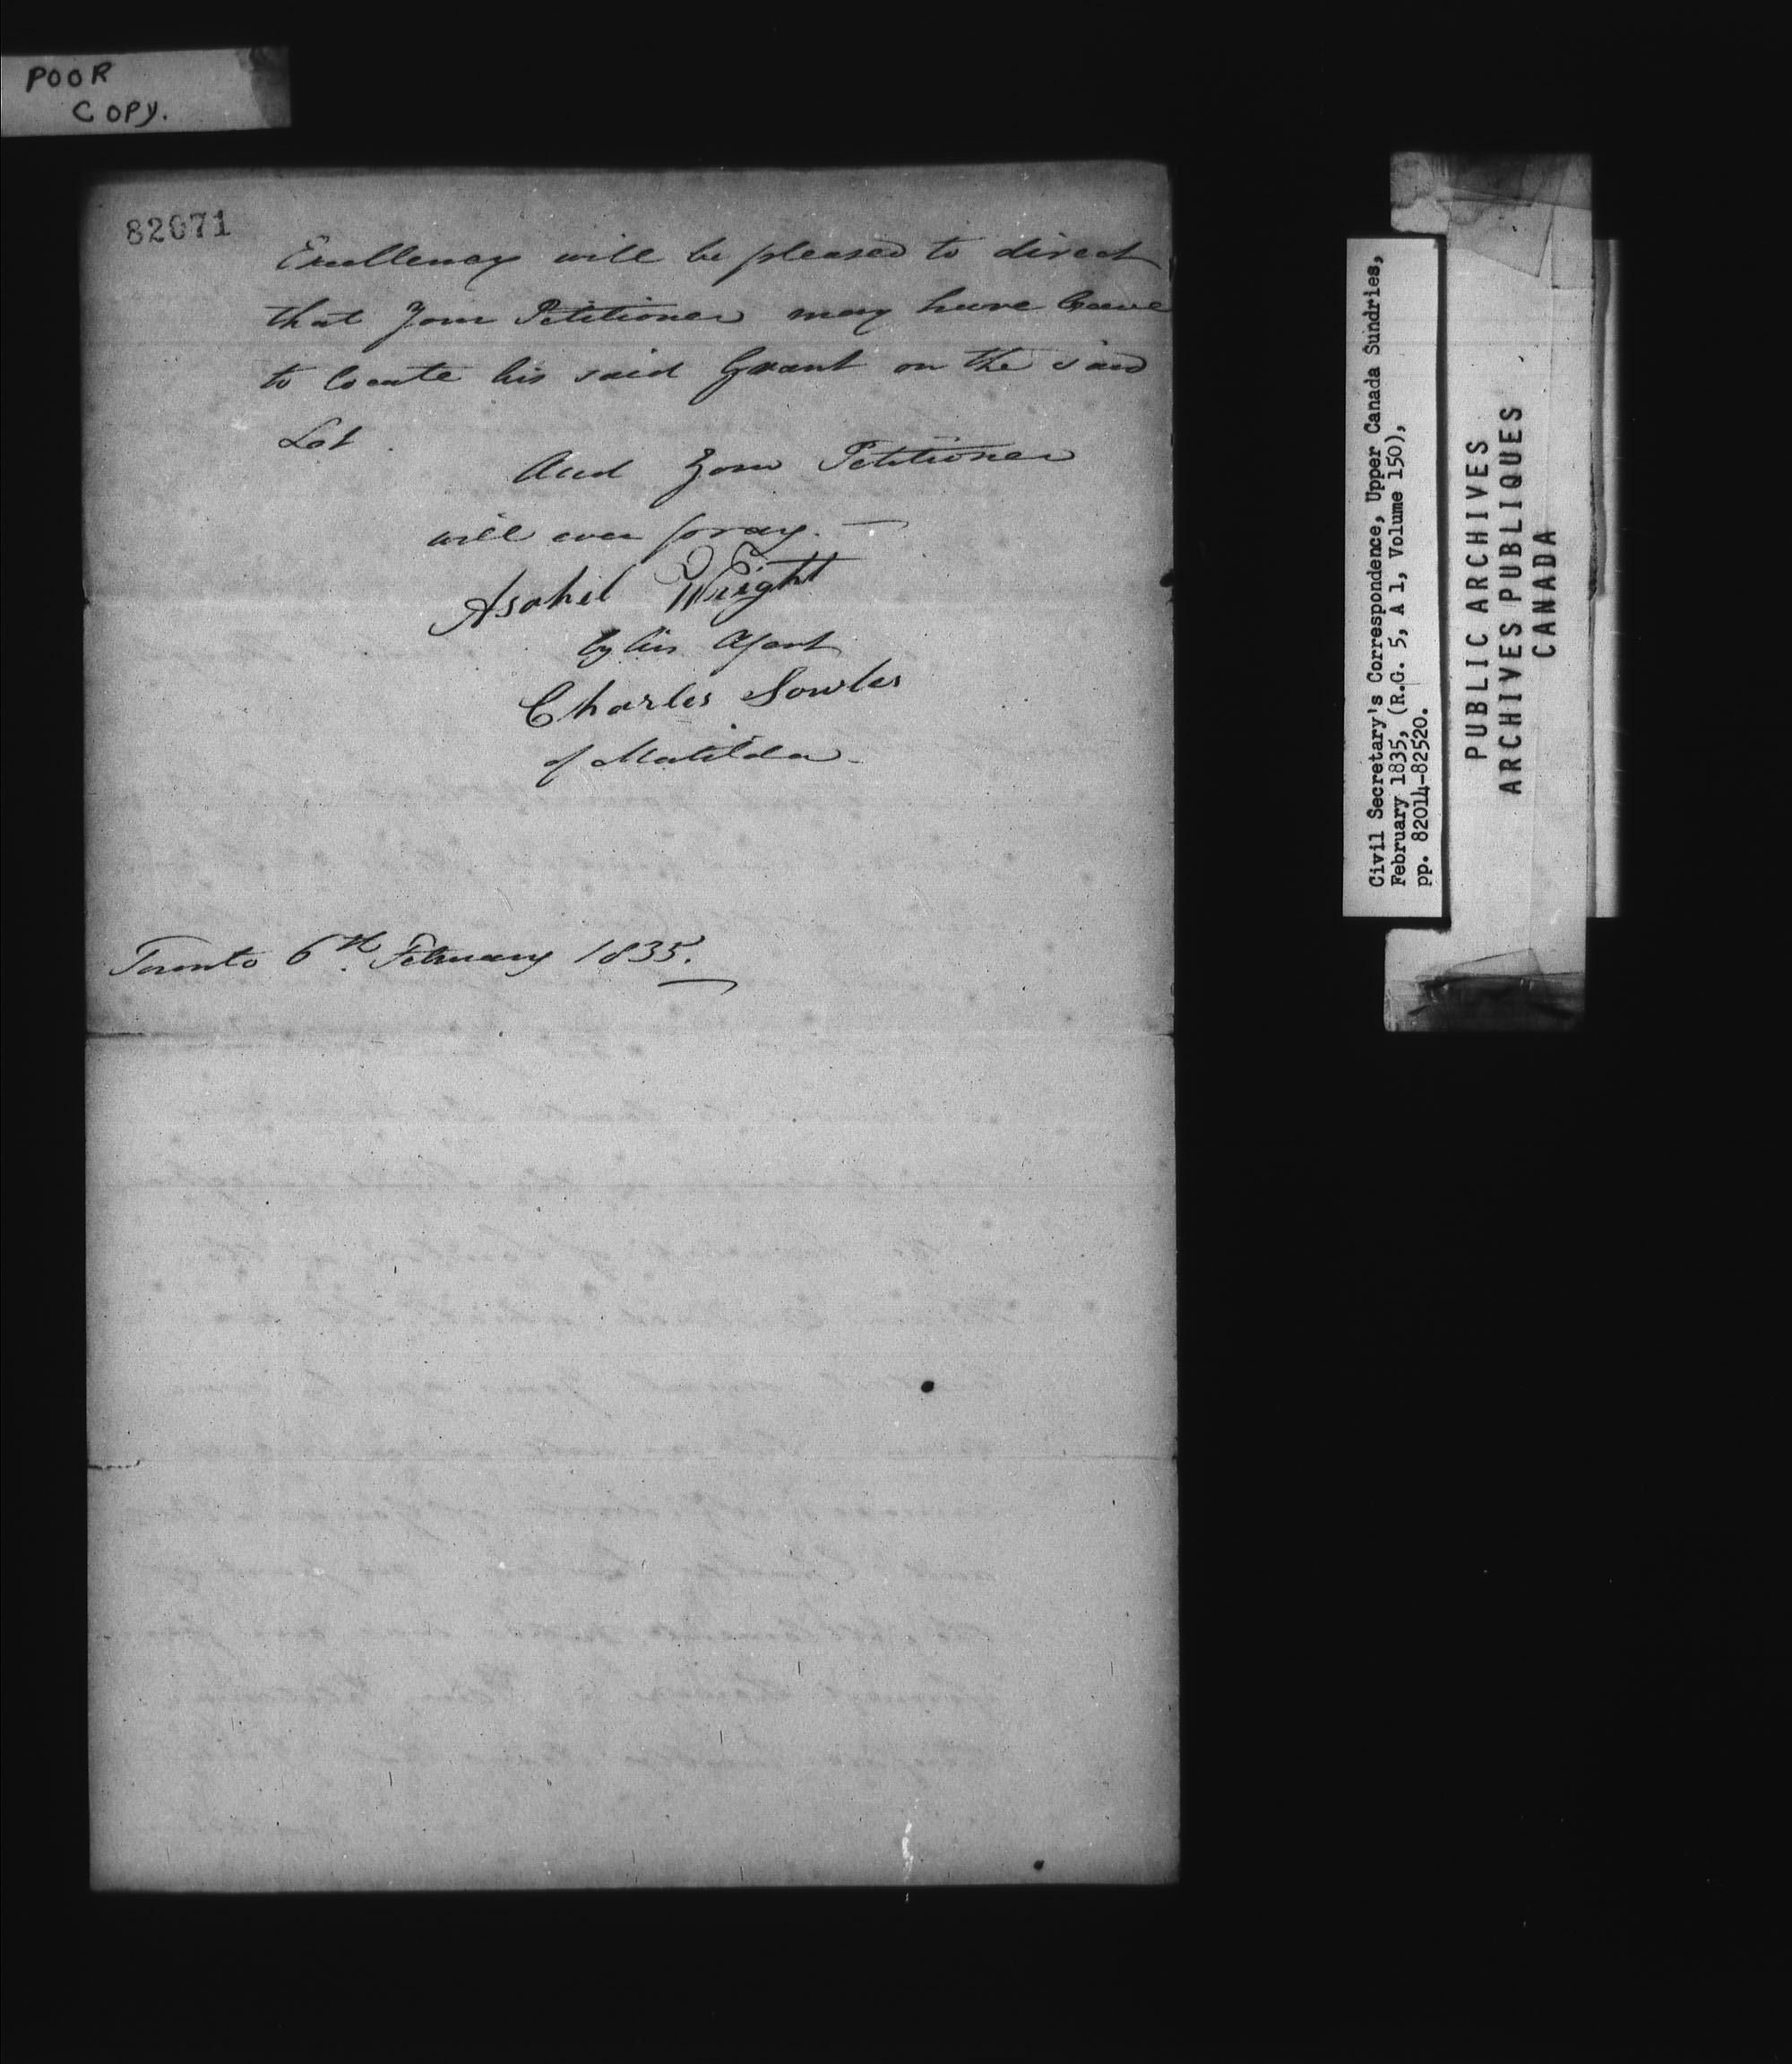 POOR
COPY.
82071
Excellency will be pleased to direct
that Your Petitioner may have leave
to locate his said Grant on the said
Lot.
And Your Petitioner
will ever pray. —
Asahel Wright
by his Agent
Charles Sowles
of Matilda
Toronto 6th February 1835.
Civil Secretary's Correspondence, Upper Canada Sundries,
February 1835, (R.G. 5, A 1, Volume 150),
pp. 82014-82520.
PUBLIC ARCHIVES
ARCHIVES PUBLIQUES
CANADA